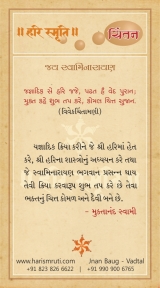 ॥ હરિ સ્મૃતિ ॥
ચિંતન
જય સ્વામિનારાયણ
જજ્ઞાદિક સે હરિ જજે, પઢત હે વેદ પુરાન;
મુક્ત કહે શુભ તપ કરે, કોમળ ચિત્ત સુજાન.
(વિવેકચિંતામણી)
યજ્ઞાદિક ક્રિયા કરીને જે શ્રી હરિમાં હેત
કરે, શ્રી હરિના શાસ્ત્રોનું અધ્યયન કરે તથા
જે સ્વામિનારાયણ ભગવાન પ્રસન્ન થાય
તેવી ક્રિયા કરવારૂપ શુભ તપ કરે છે તેવા
ભક્તનું ચિત્ત કોમળ અને દૈવી બને છે.
- મુક્તાનંદ સ્વામી
www.harismruti.com
Jnan Baug - Vadtal
+91 823 826 6622
+91 990 900 6765